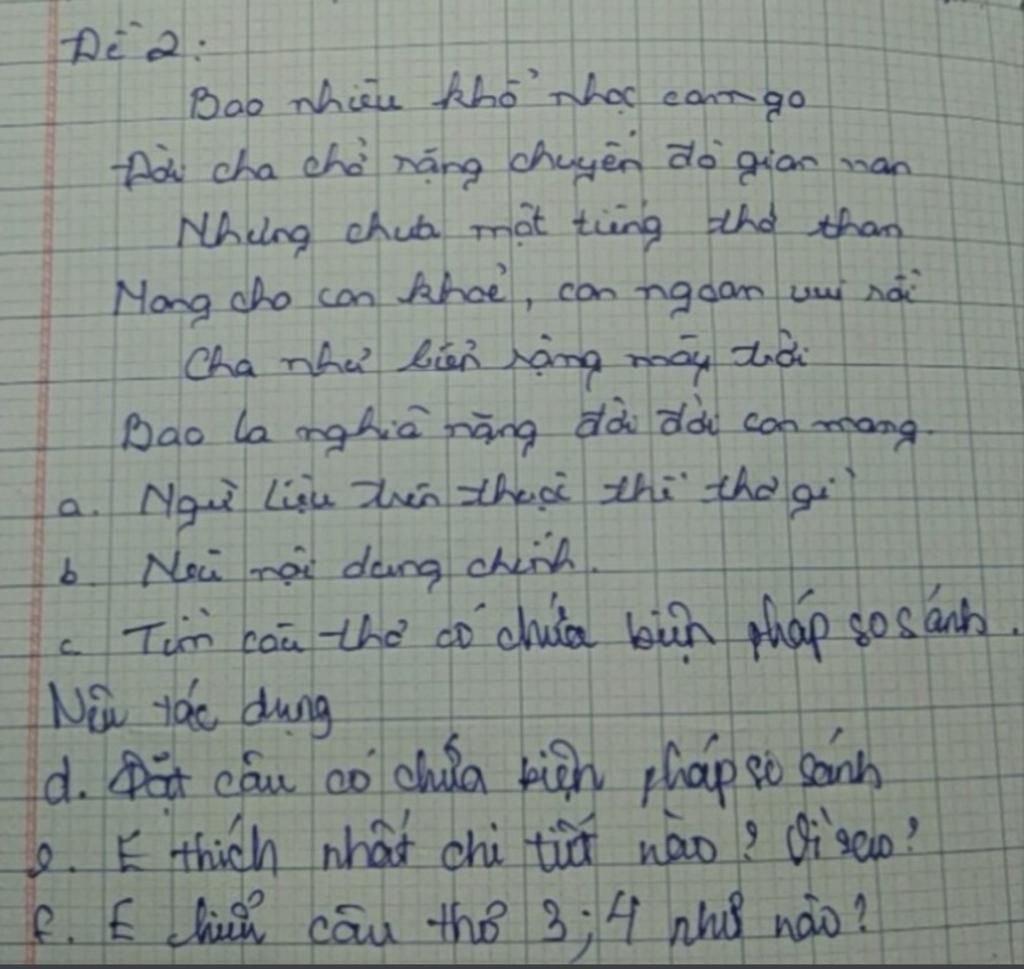 Đề 2:
Bao nhiêu khổ nhọc cam go
Đời cha chở nặng chuyến đò gian nan
Nhưng chưa một tiếng thở than
Mong cho con khoẻ, con ngoan vui rồi
Cha như biển rộng mây trời
Bao la nghĩa nặng đời đời con mang.
a. Ngữ liệu trên thuộc thể thơ gì
b. Nêu nội dung chính.
c. Tìm câu thơ có chứa biện pháp so sánh.
Nêu tác dụng
d. Đặt câu có chứa biện pháp so sánh
e. E thích nhất chi tiết nào? Vì sao?
f. E hiểu câu thơ 3; 4 như nào?